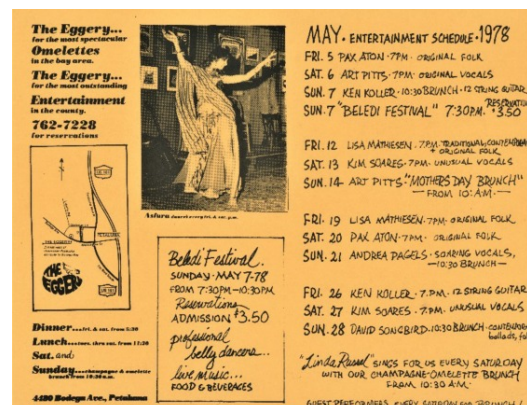 The Eggery...
for the most spectacular
Omelettes
in the bay area.
The Eggery...
for the most outstanding
Entertainment
in the county.
762-7228
for reservations
THE
EGGERY
Dinner...fri. & sat. from 5:30
Lunch...tues. thru sat. from 11:30
Sat. and
Sunday...champagne & omelette
brunch from 10:30 a.m.
4480 Bodega Ave., Petaluma
Beledi Festival.
SUNDAY·MAY 7-78
FROM 7:30PM-10:30PM
Reservations
ADMISSION $3.50
professional
belly dancers...
live music...
FOOD & BEVERAGES
MAY. ENTERTAINMENT SCHEDULE·1978
FRI. 5 PAX ATON·7PM· ORIGINAL FOLK
SAT. 6 ART PITTS·7PM· ORIGINAL VOCALS
SUN. 7 KEN KOLLER·10:30 BRUNCH·12 STRING GUITAR
SUN. 7 "BELEDI FESTIVAL" 7:30PM. $3.50
FRI. 12 LISA MATHIESEN·7PM·TRADITIONAL,
+ ORIGINAL FOLK
SAT. 13 KIM SOARES·7PM· UNUSUAL VOCALS
SUN. 14· ART PITTS·"MOTHERS DAY BRUNCH"
—FROM 10: A.M.—
FRI. 19 LISA MATHIESEN·7PM· ORIGINAL FOLK
SAT. 20 PAX ATON·7PM· ORIGINAL FOLK
SUN. 21 ANDREA PAGELS·SOARING VOCALS,
—10:30 BRUNCH—
FRI. 26 KEN KOLLER·7PM·12 STRING GUITAR
SAT. 27 KIM SOARES·7PM· UNUSUAL VOCALS
SUN. 28 DAVID SONGBIRD·10:30 BRUNCH·
"Linda Russel" SINGS FOR US EVERY SATURDAY
WITH OUR CHAMPAGNE-OMELETTE BRUNCH
FROM 10:30 A.M.